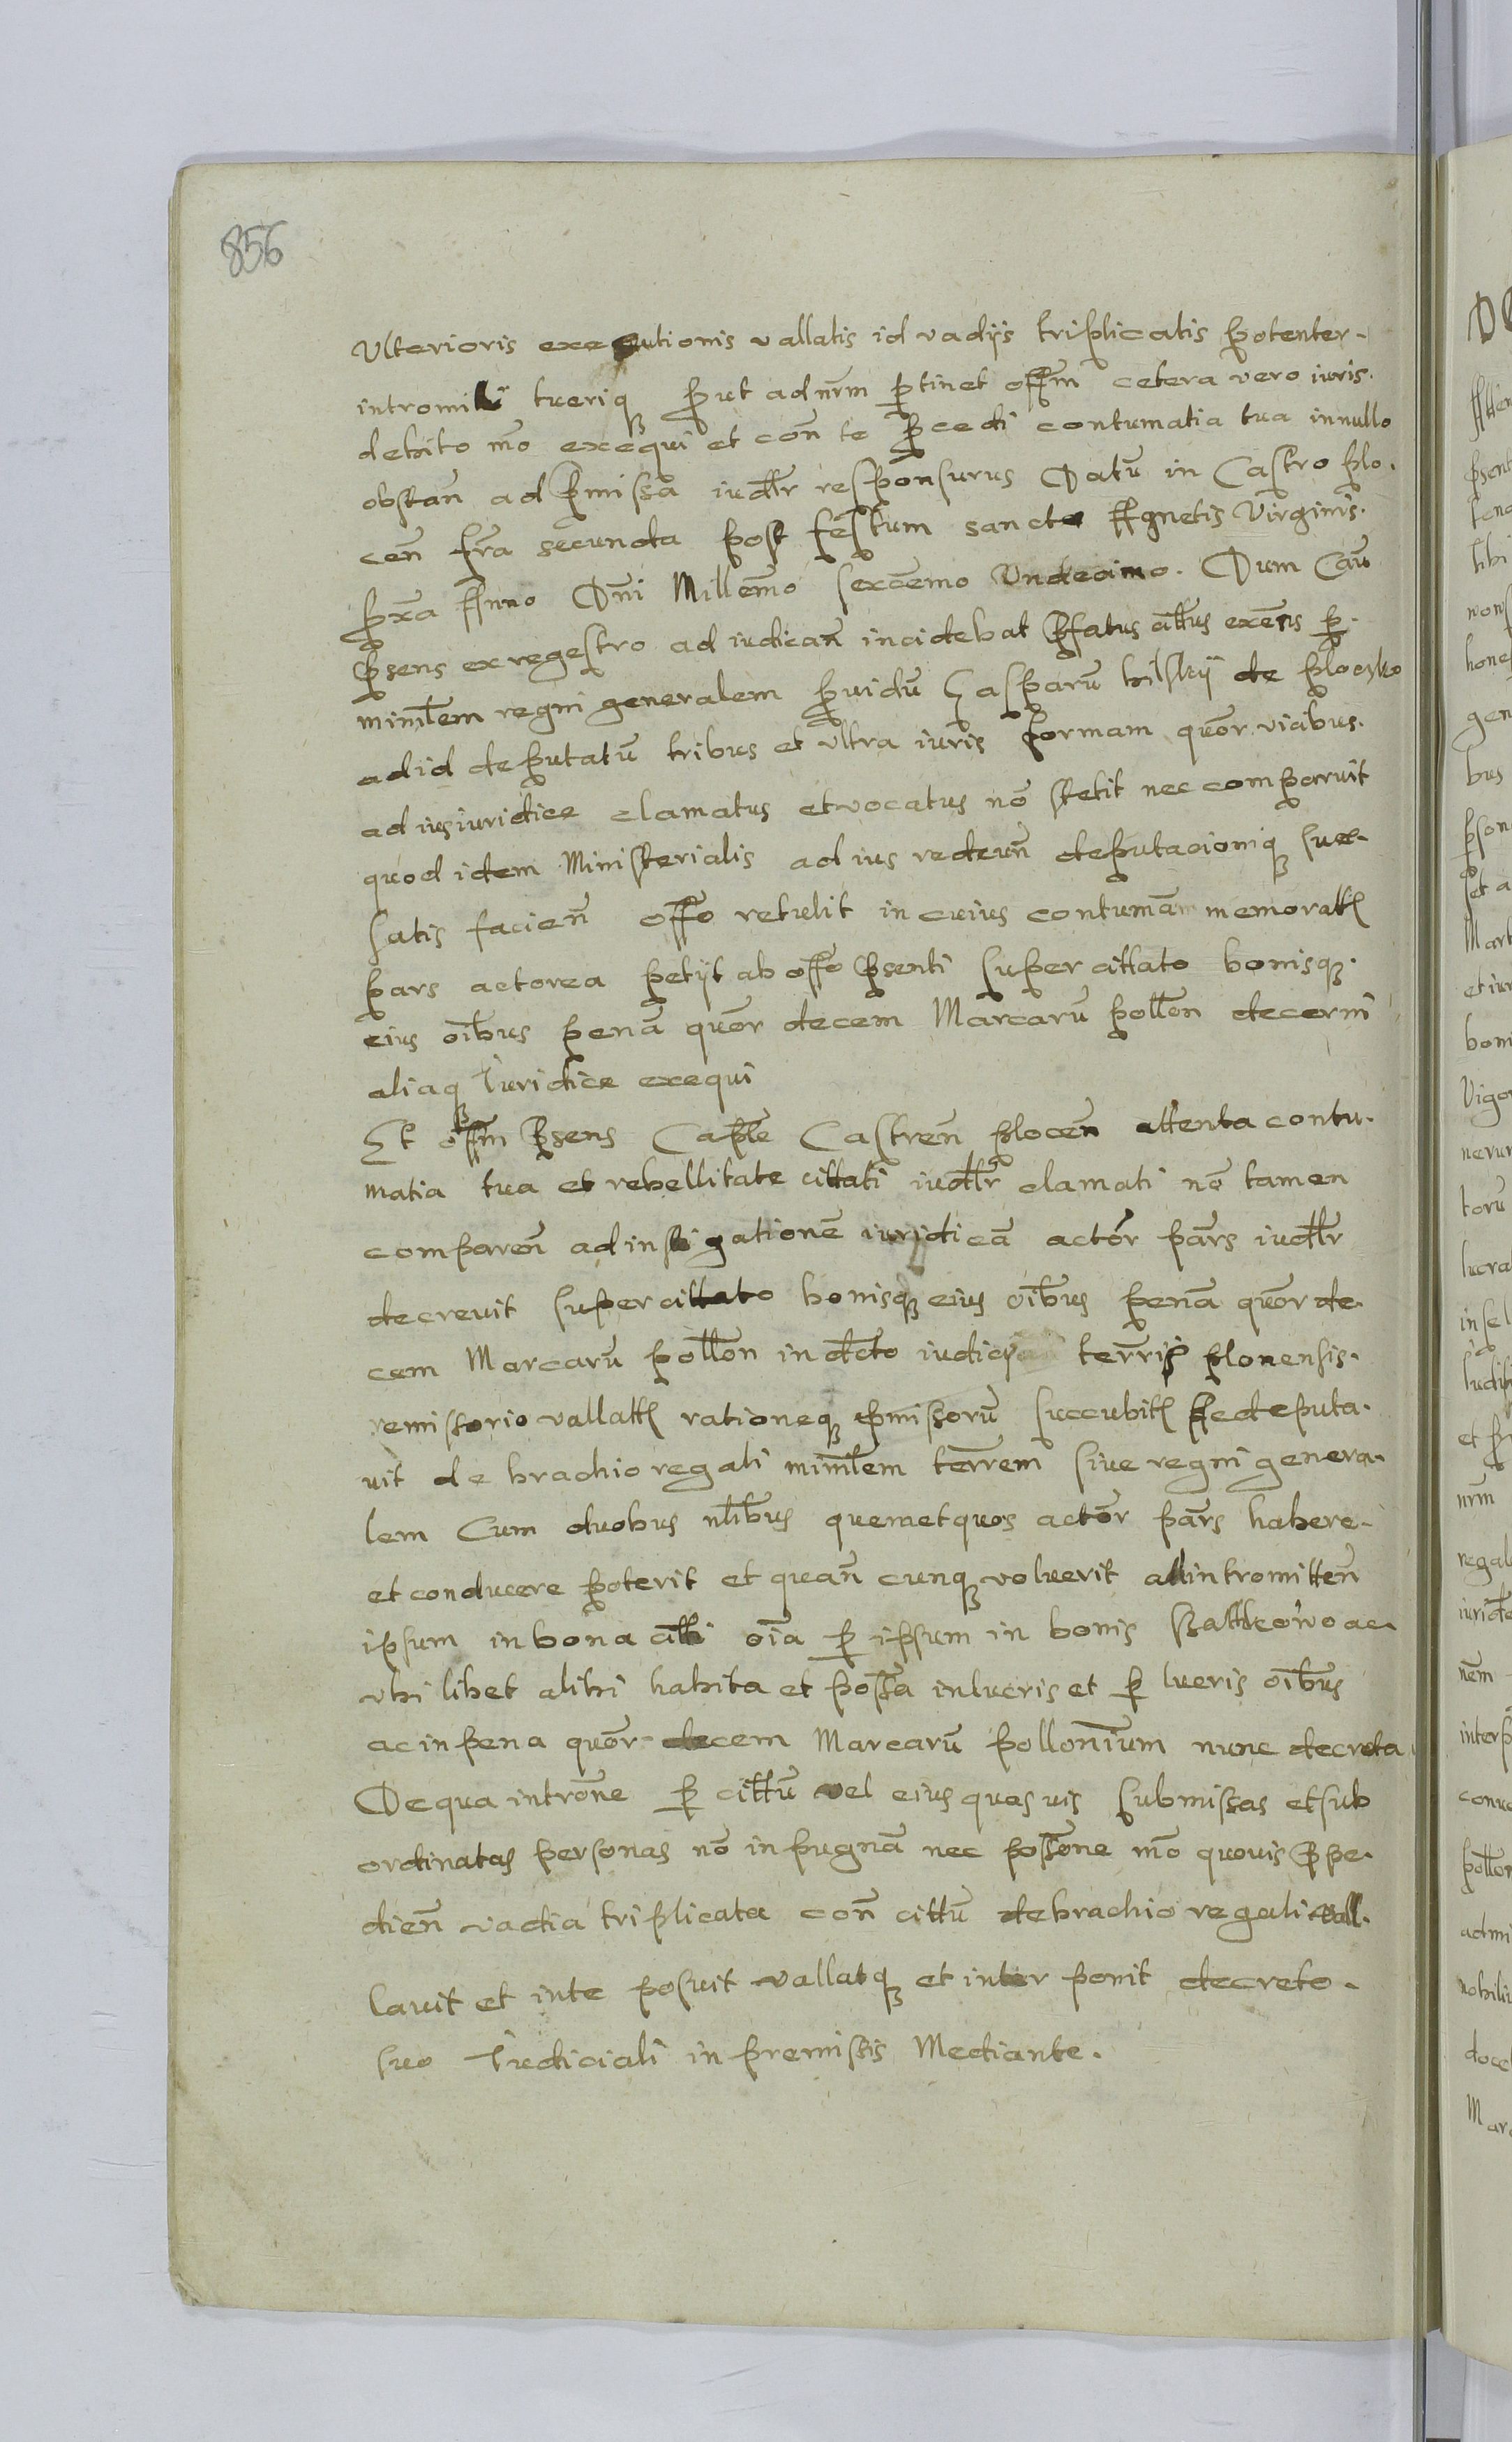 856
Ulterioris executionis vallatis id vadijs triplicatis potenter-
intromitti tueriq put ad nrm ptinet offm cetera vero iuris.
debito mo exequi et con te pcedi contumatia tua in nullo
obstan ad pmissa iudlr responsurus Datu in Castro plo.
cen fra secunda post festum sancte Agnetis Virginis.
pxa Anno Dni Millemo sexcemo Undecimo. Dum Cau
psens ex regestro ad iudican incidebat pfatus cittus exens p.
minlem regni generalem puidu Casparu bilskij de plocko
ad id deputatu tribus et ultra iuris formam quor viabus.
ad ius iuridice clamatus et vocatus no stetit nec comparuit
quod idem Ministerialis ad ius redeun deputacioniq sue-
satis facien offo retulit in cuius contumam memorat
pars actorea petijt ab offo psenti super cittato bonisq.
eius oibus pena quor decem Marcaru pollon decerni
aliaq Iuridice exequi
Et offm psens Caple Castren plocen attenta contu.
matia tua et rebellitate cittati iudlr clamati no tamen
comparen ad instigatione iuridica actor pars iudlr
decrevit super cittato bonisq eius oibus pena quor de.
cem Marcaru pollon in dcto iudicij terris plonensis.
remissorio vallat rationeq pmissoru succubit Ac deputa.
vit de brachio regali minlem terrem sive regni genera.
lem Cum duobus nlibus quem et quos actor pars habere-
et conducere poterit et quan cunq voluerit ad intromitten
ipsum in bona citti oia p ipsum in bonis ac
ubi libet alibi habita et possa in lucris et p lucris oibus
ac in pena quor decem Marcaru pollonium nunc decreta
De qua introne p cittu vel eius quas vis submissas et sub
ordinatas personas no inpugna nec possone mo quovis ppe.
dien vadia triplicata con cittu de brachio regali vall.
lavit et inte posuit vallatq et inter ponit decreto.
suo Iudiciali in premistis Mediante.